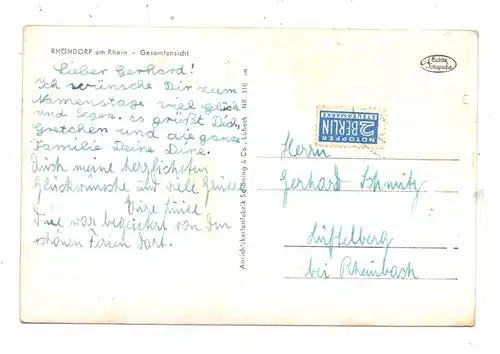 RHÖNDORF am Rhein - Gesamtansicht
Lieber Gerhard!
Ich wünsche Dir zum
Namenstage viel Glück
und Segen. es grüßt Dich,
Gretchen und die ganze
Familie Deine Dine.
Auch meine herzlichsten
Glückwünsche und viele Grüsse
Dine war begeistert von den
schönen Ferien dort.
Ansichtskartenfabrik Schöning & Co., Lübeck NR. 310
Echte
Fotografie
NOTOPFER
2 BERLIN
STEUERMARKE
Herrn
Gerhard Schmitz
Lüftelberg
bei Rheinbach